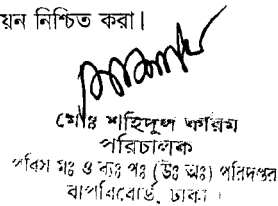 য়ন নিশ্চিত করা।
মোঃ শহিদুল করিম
পরিচালক
পবিস মঃ ও ব্যঃ পঃ (উঃ অঃ) পরিদপ্তর
বাপবিবোর্ড, ঢাকা।